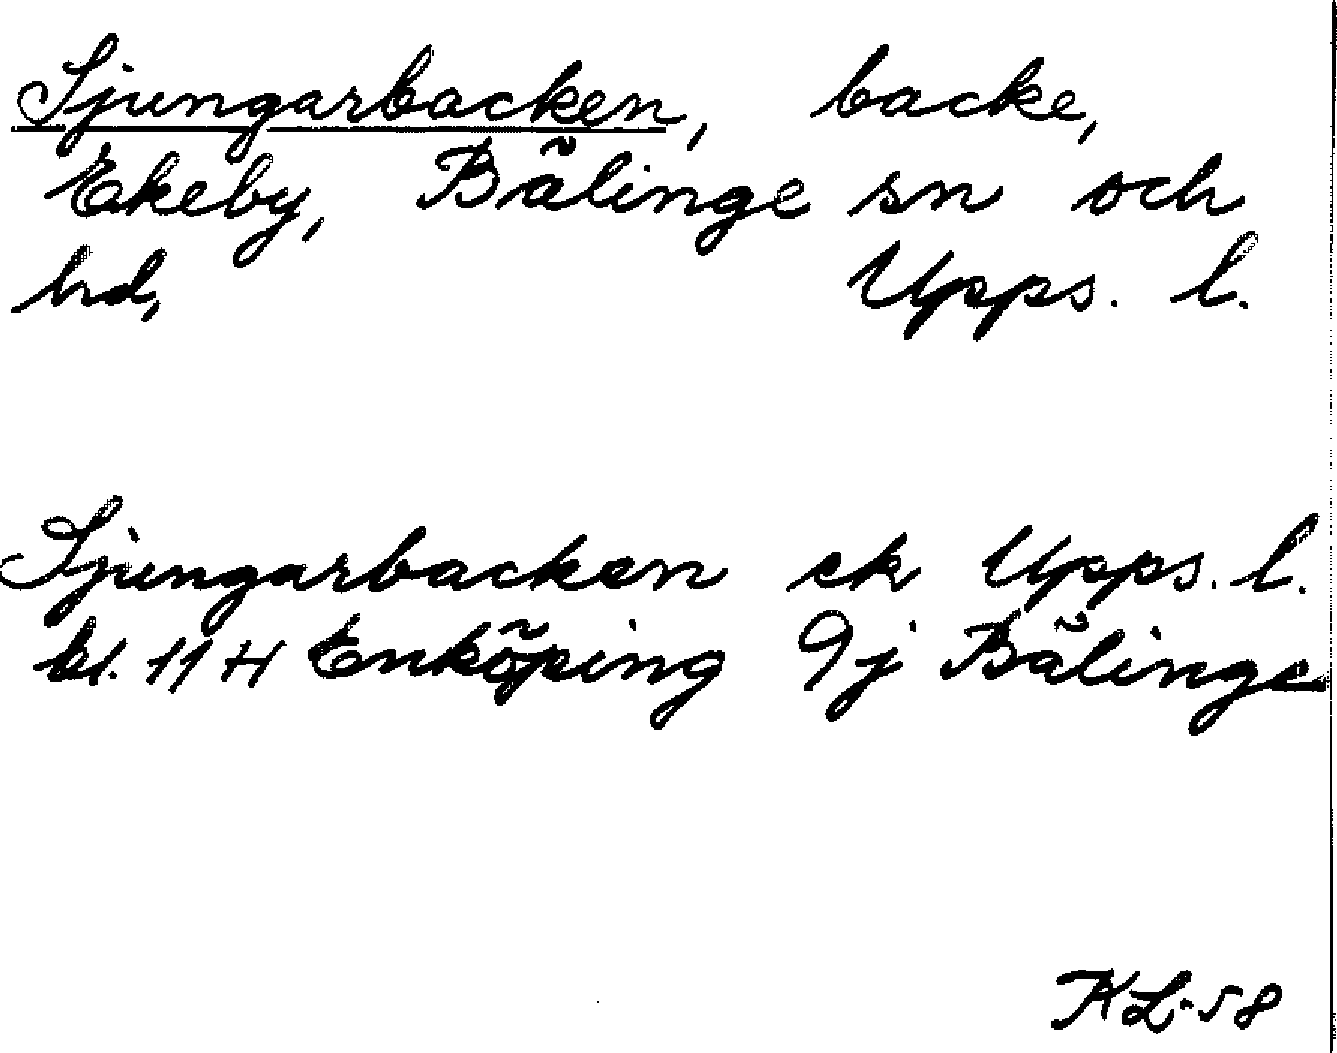 Sjungarbacken, backe,
Ekeby, Bälinge sn och
hd, Upps. l.
Sjungarbacken ek Upps. l.
bl. 11 H Enköping 9j Bälinge
KL-58